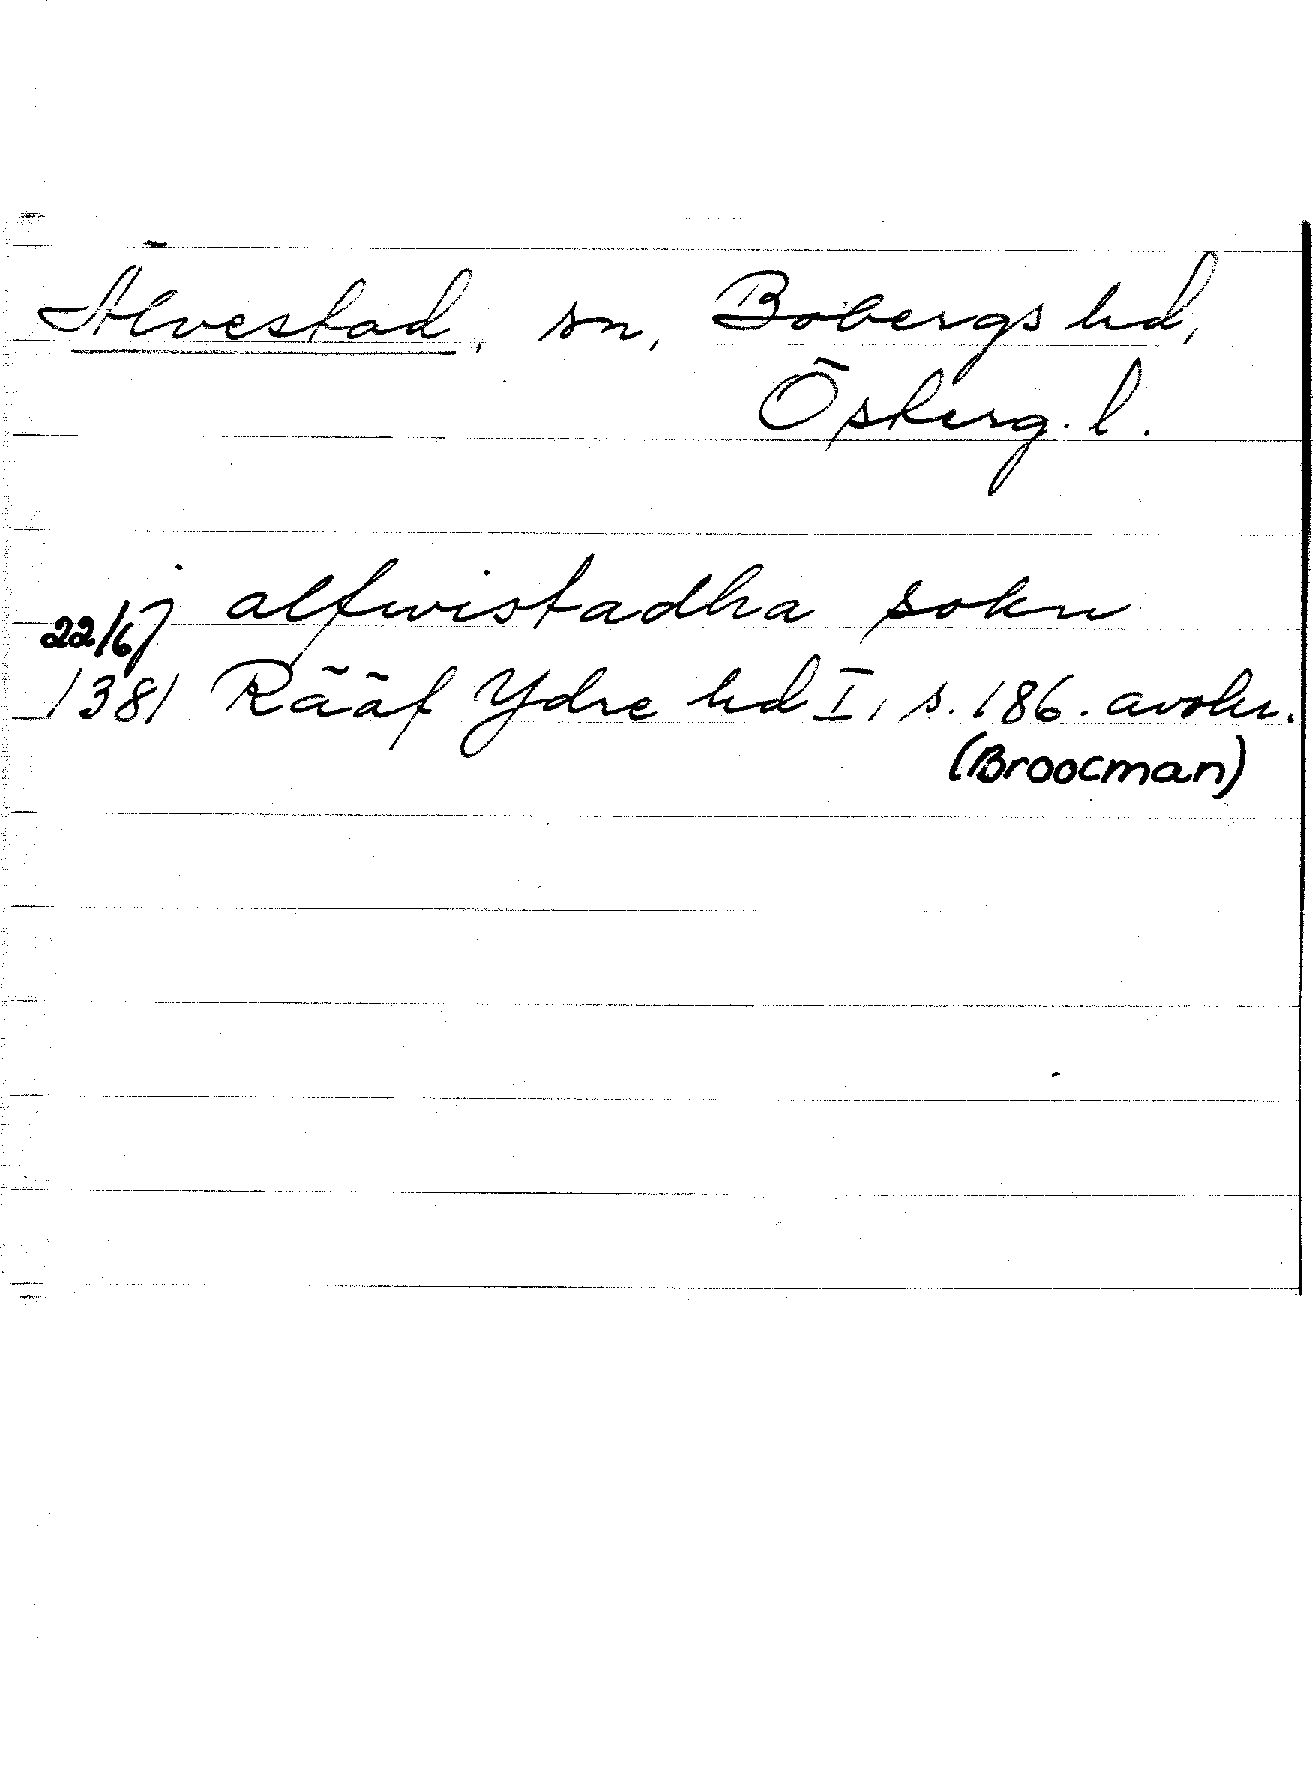 Alvestad, sn, Bobergs hd,
Österg. l.
j alfwistadha sokn
22/6
1381 Rääf Ydre hd I, s. 186. avskr.
(Broocman)